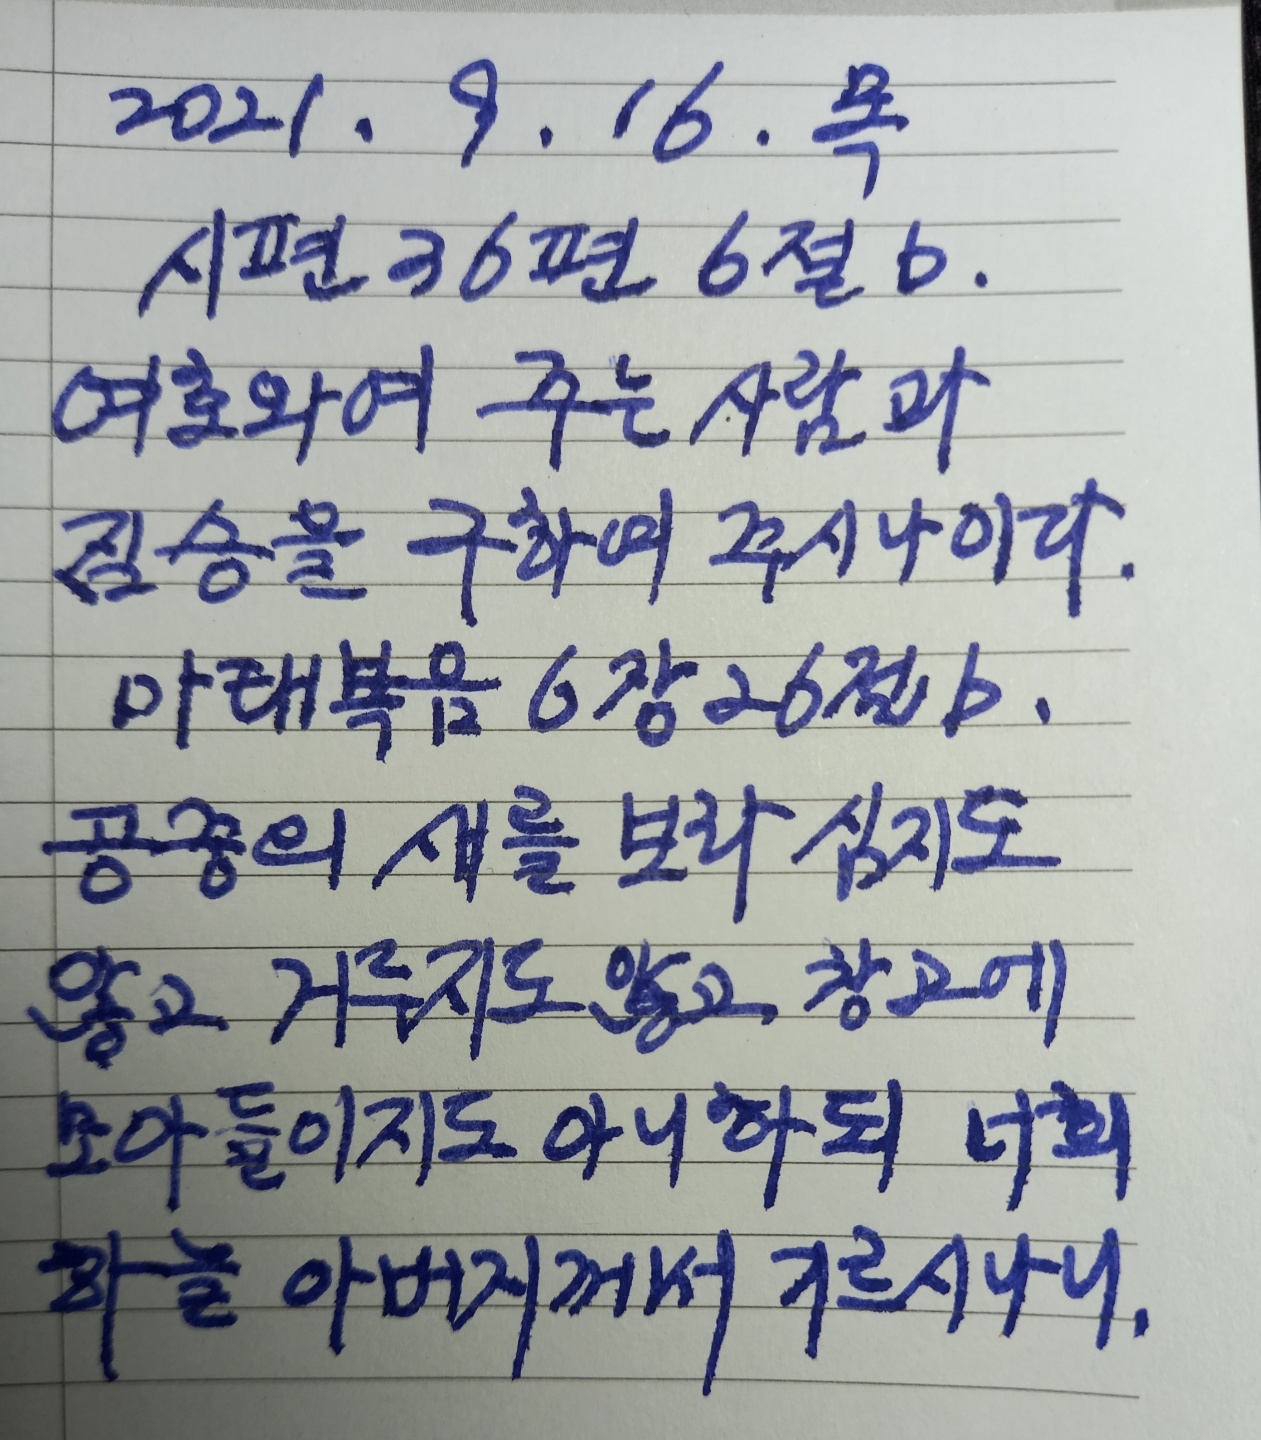 2021. 9. 16. 목
시편 36편 6절 b.
여호와여 주는 사람과
짐승을 구하여 주시나이다.
마태복음 6장 26절 b.
공중의 새를 보라 심지도
않고 거두지도 않고 창고에
모아들이지도 아니하되 너희
하늘 아버지께서 기르시나니.